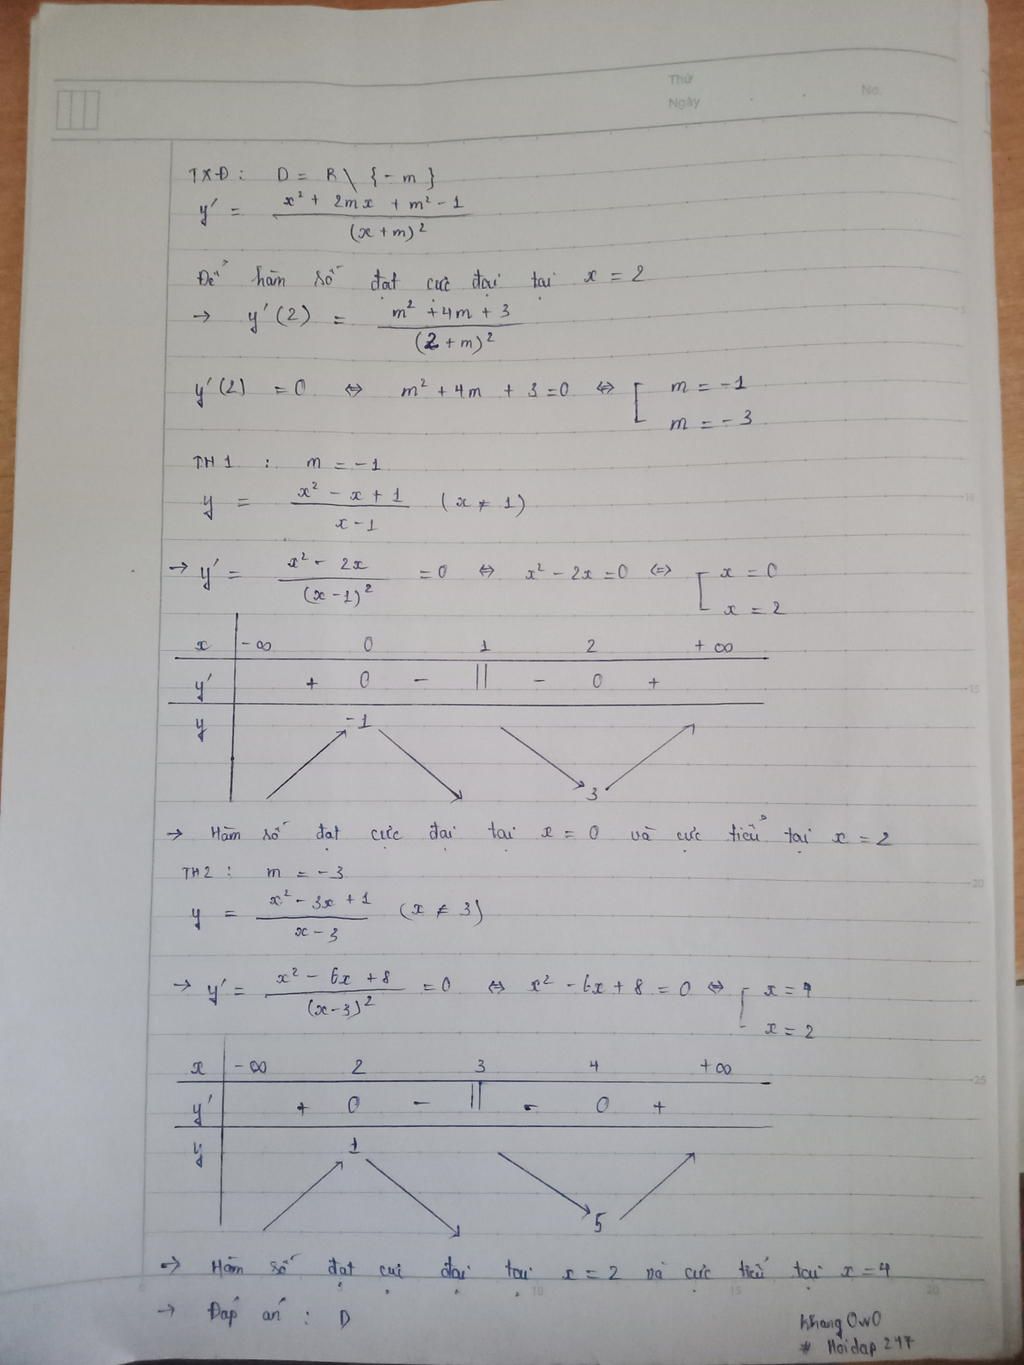 Thứ
Ngày
No.
TXĐ: D = R \ {-m}
y' = (x² + 2mx + m² - 1) / (x+m)²
Để hàm số đạt cực đại tại x = 2
→ y'(2) = (m² + 4m + 3) / (2+m)²
y'(2) = 0 ⇔ m² + 4m + 3 = 0 ⇔ [ m = -1
m = -3
TH1 : m = -1
y = (x² - x + 1) / (x-1) (x ≠ 1)
→ y' = (x² - 2x) / (x-1)² = 0 ⇔ x² - 2x = 0 ⇔ [ x = 0
x = 2
x -∞ 0 1 2 +∞
y' + 0 - || - 0 +
y -1
3
→ Hàm số đạt cực đại tại x = 0 và cực tiểu tại x = 2
TH2 : m = -3
y = (x² - 3x + 1) / (x-3) (x ≠ 3)
→ y' = (x² - 6x + 8) / (x-3)² = 0 ⇔ x² - 6x + 8 = 0 ⇔ [ x = 4
x = 2
x -∞ 2 3 4 +∞
y' + 0 - || - 0 +
y 1
5
→ Hàm số đạt cực đại tại x = 2 và cực tiểu tại x = 4
→ Đáp án : D
Khang OwO
# Hoidap 247